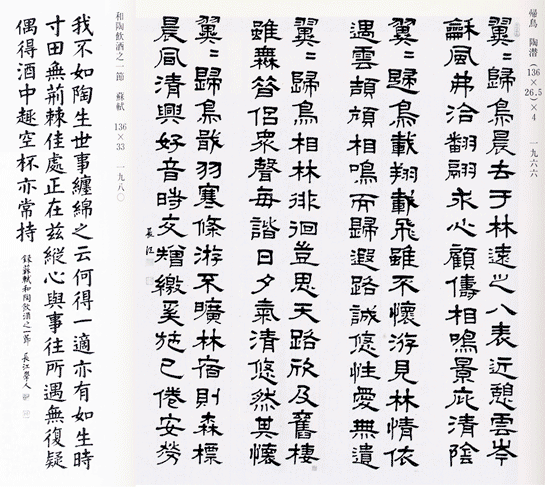 帰鳥 陶潜 (136×26.5)×4 一九六六
翼〻歸鳥晨去于林遠之八表近憩雲岑
龢風弗洽翻翮求心顧儔相鳴景庇清陰
翼〻歸鳥載翔載飛雖不懷游見林情依
遇雲頡頏相鳴而歸遐路誠悠性愛無遺
翼〻歸鳥相林徘徊豈思天路欣及舊棲
雖無昔侶衆聲每諧日夕氣清悠然其懷
翼〻歸鳥戢羽寒條游不曠林宿則森標
晨風清興好音時交矰繳奚施已倦安勞
長江
和陶飲酒之一節 蘇軾 136×33 一九八〇
我不如陶生世事纏綿之云何得一適亦有如生時
寸田無荊棘佳處正在茲縱心與事往所遇無復疑
偶得酒中趣空杯亦常持
錄蘇軾和陶飲酒之一節 長江學人